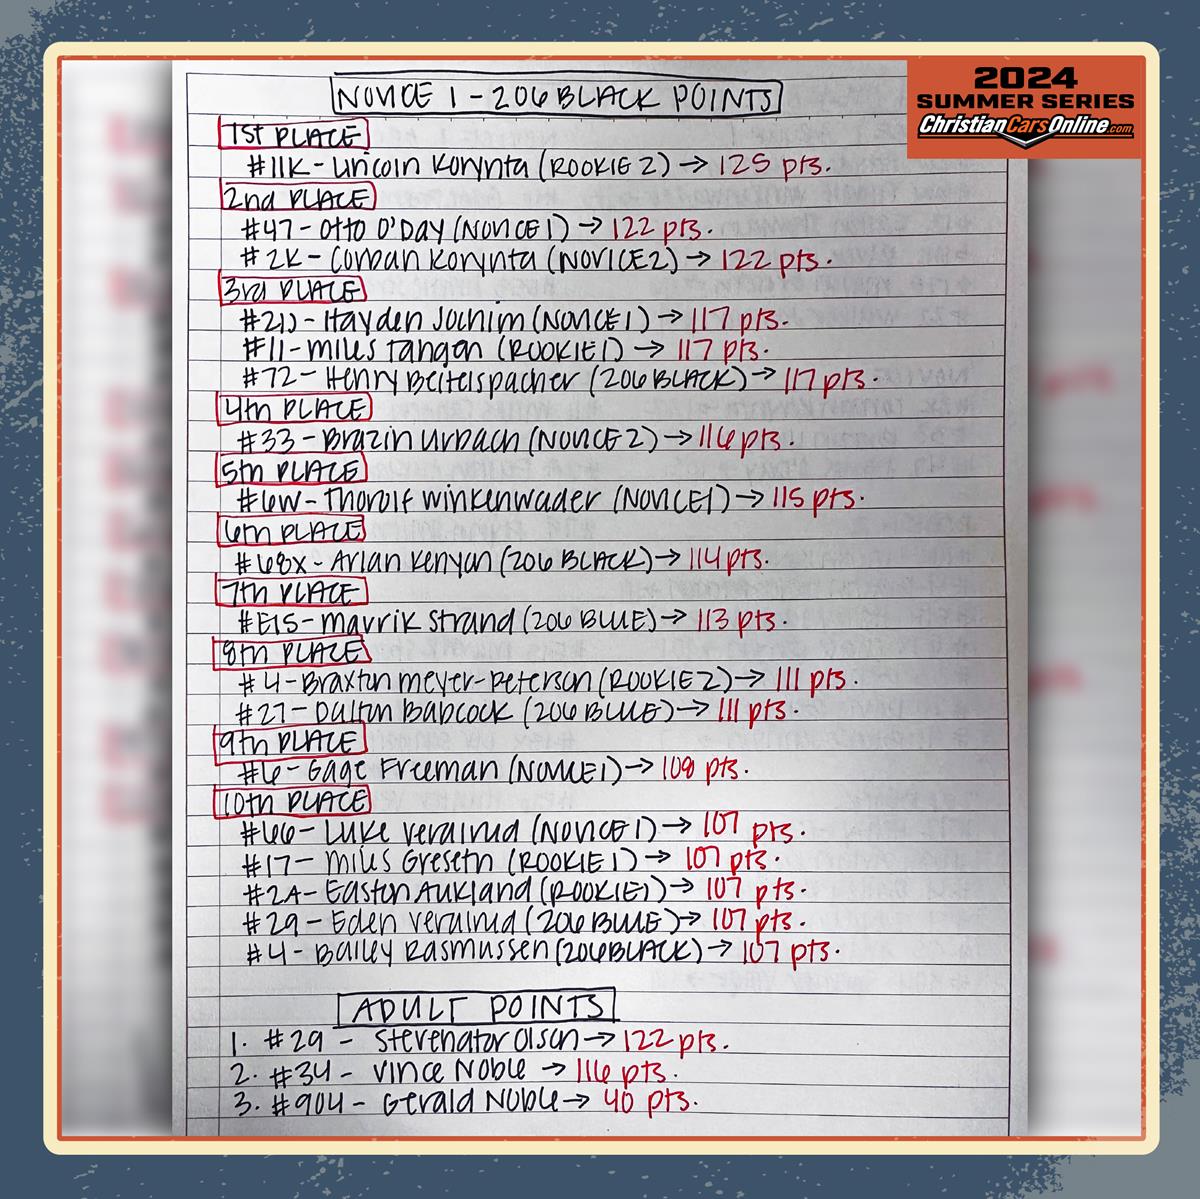 2024
SUMMER SERIES
ChristianCarsOnline.com
NOVICE 1 - 206 BLACK POINTS
1st PLACE
#11K - Lincoln Korynta (ROOKIE 2) → 125 pts.
2nd PLACE
#47 - Otto O'Day (NOVICE 1) → 122 pts.
#2K - Corban Korynta (NOVICE 2) → 122 pts.
3rd PLACE
#21J - Hayden Jochim (NOVICE 1) → 117 pts.
#11 - Miles Tangen (ROOKIE 1) → 117 pts.
#72 - Henry Beitelspacher (206 BLACK) → 117 pts.
4th PLACE
#33 - Brazin Urbach (NOVICE 2) → 116 pts.
5th PLACE
#6W - Thorolf Winkenwader (NOVICE 1) → 115 pts.
6th PLACE
#68X - Arlan Kenyon (206 BLACK) → 114 pts.
7th PLACE
#E15 - Mavrik Strand (206 BLUE) → 113 pts.
8th PLACE
#4 - Braxton Meyer-Peterson (ROOKIE 2) → 111 pts.
#27 - Dalton Babcock (206 BLUE) → 111 pts.
9th PLACE
#6 - Gage Freeman (NOVICE 1) → 108 pts.
10th PLACE
#66 - Luke Veralrud (NOVICE 1) → 107 pts.
#17 - Miles Greseth (ROOKIE 1) → 107 pts.
#2A - Easton Aukland (ROOKIE 1) → 107 pts.
#29 - Eden Veralrud (206 BLUE) → 107 pts.
#4 - Bailey Rasmussen (206 BLACK) → 107 pts.
ADULT POINTS
1. #29 - Stevenator Olson → 122 pts.
2. #34 - Vince Noble → 116 pts.
3. #904 - Gerald Noble → 40 pts.